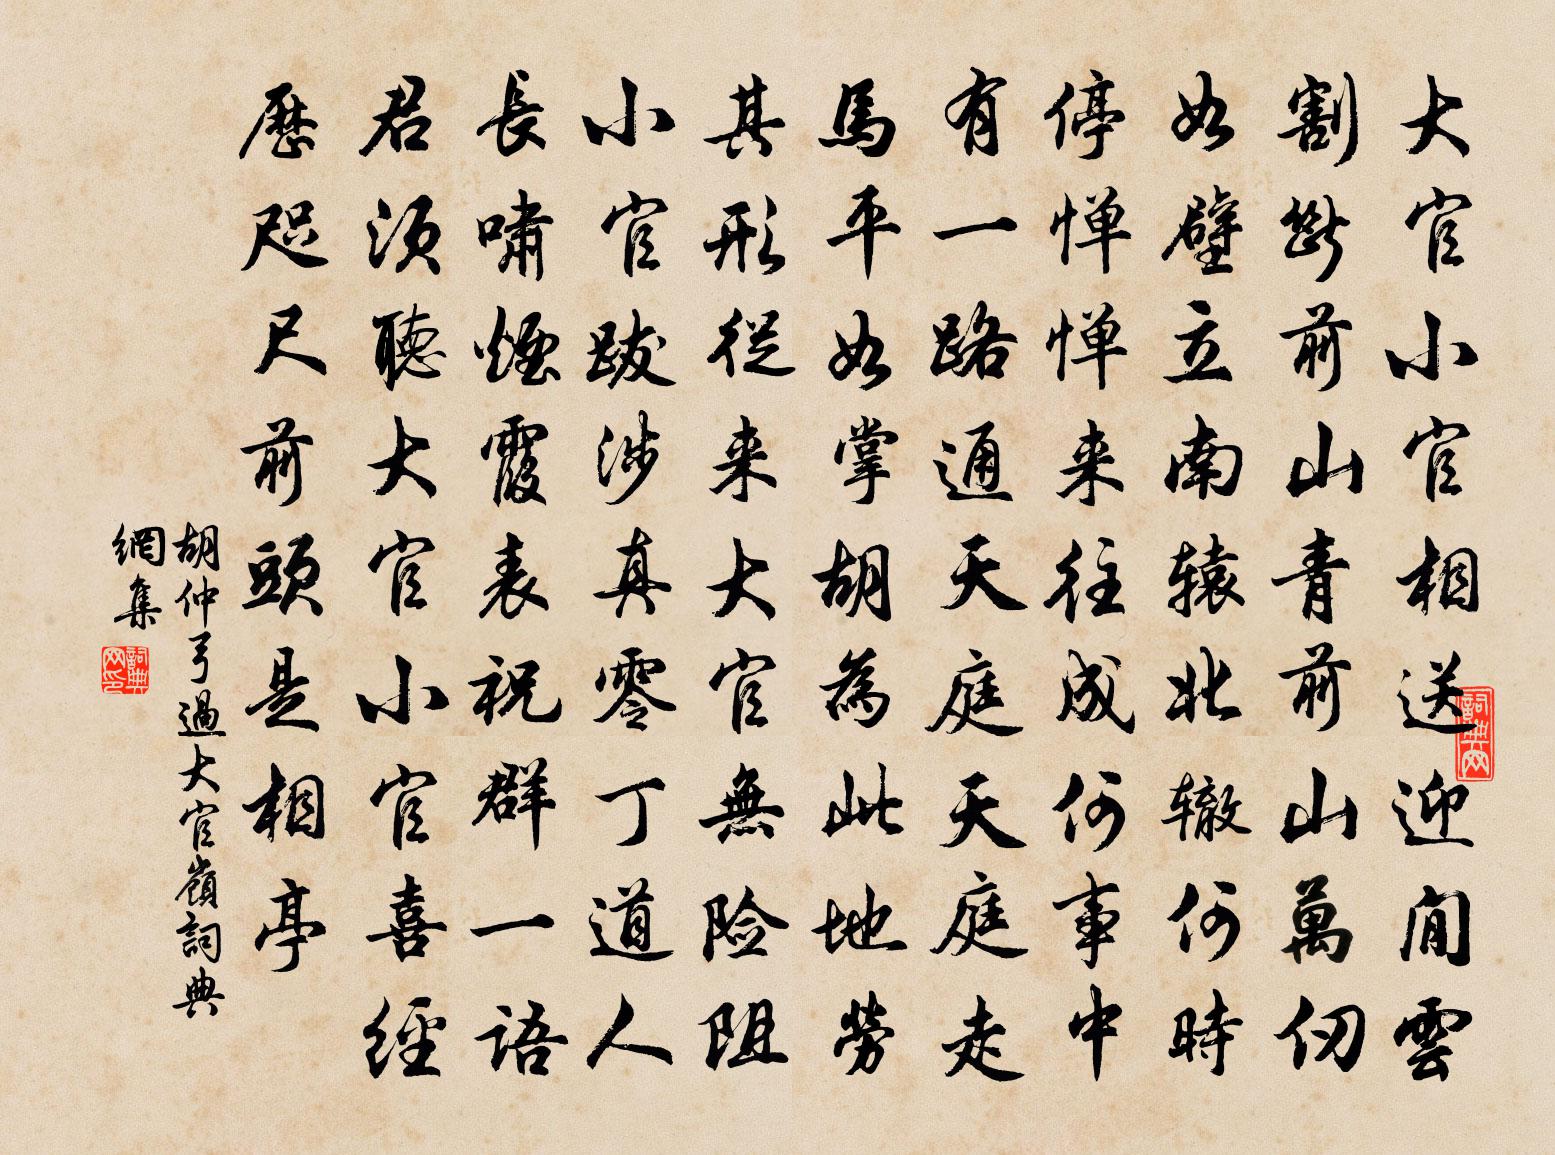 大官小官相送迎閒雲
割斷前山青前山萬仞
如壁立南辕北辙何時
停惮惮来往成何事中
有一路通天庭天庭走
馬平如掌胡為此地勞
其形從来大官無险阻
小官跋涉真零丁道人
長嘯煙霞表祝群一語
君須聽大官小官喜經
歷咫尺前頭是相亭
胡仲弓過大官嶺詞典
網集
詞典网
詞典网印